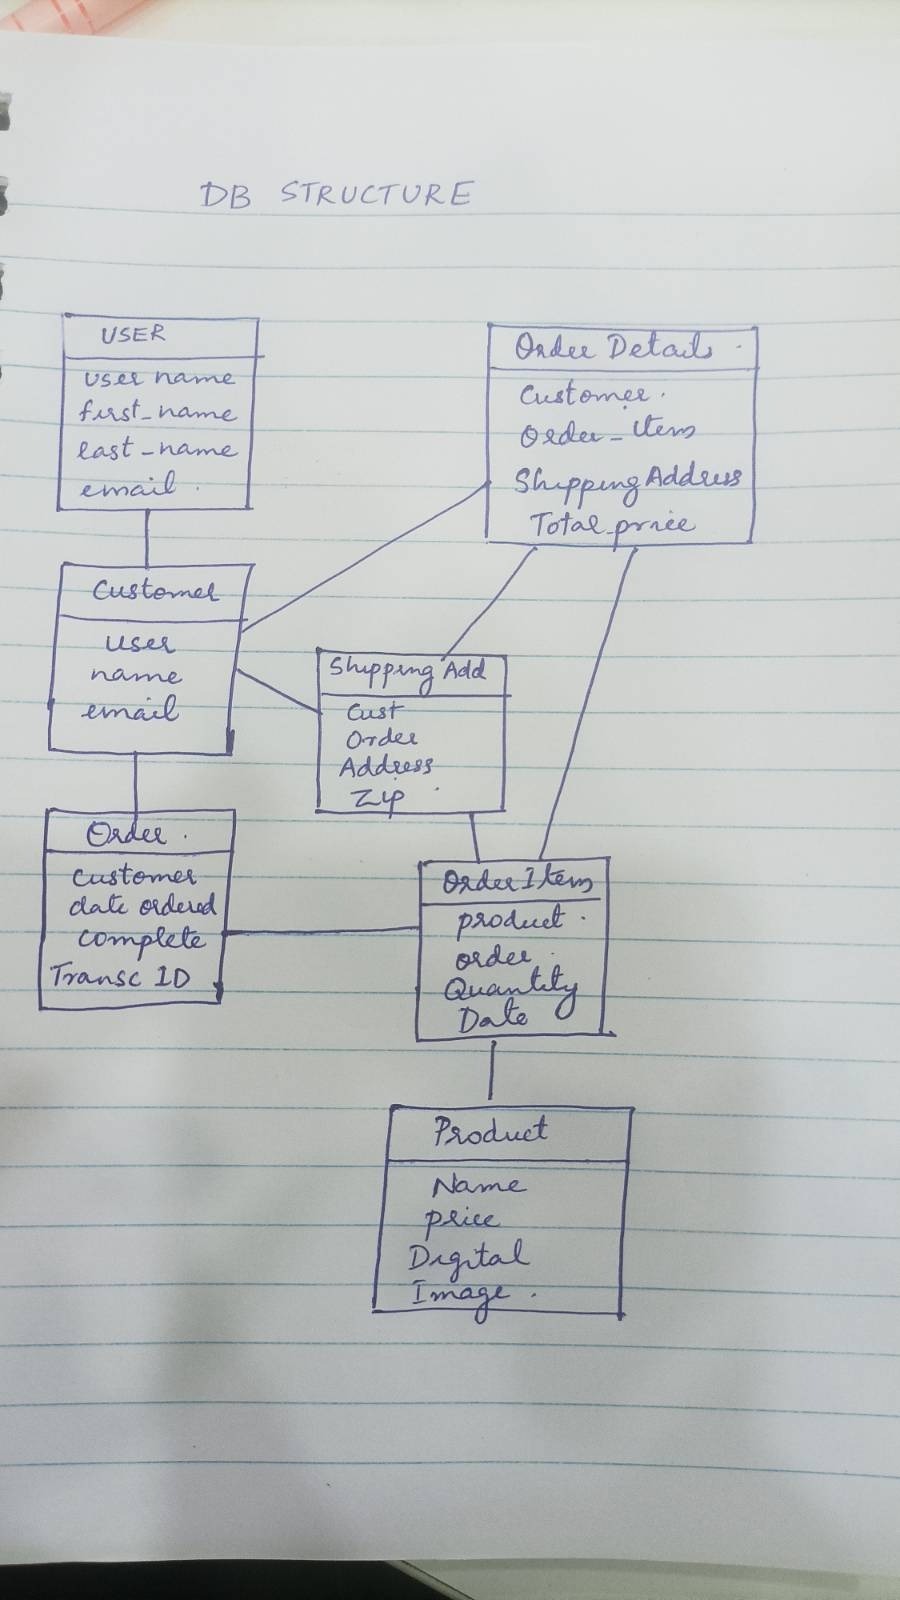 DB STRUCTURE
USER
user name
first_name
last_name
email
Order Details
Customer
Order_Item
Shipping Address
Total_price
Customer
user
name
email
Shipping Add
Cust
Order
Address
Zip
Order
customer
date ordered
complete
Transc ID
Order Item
product
order
Quantity
Date
Product
Name
price
Digital
Image